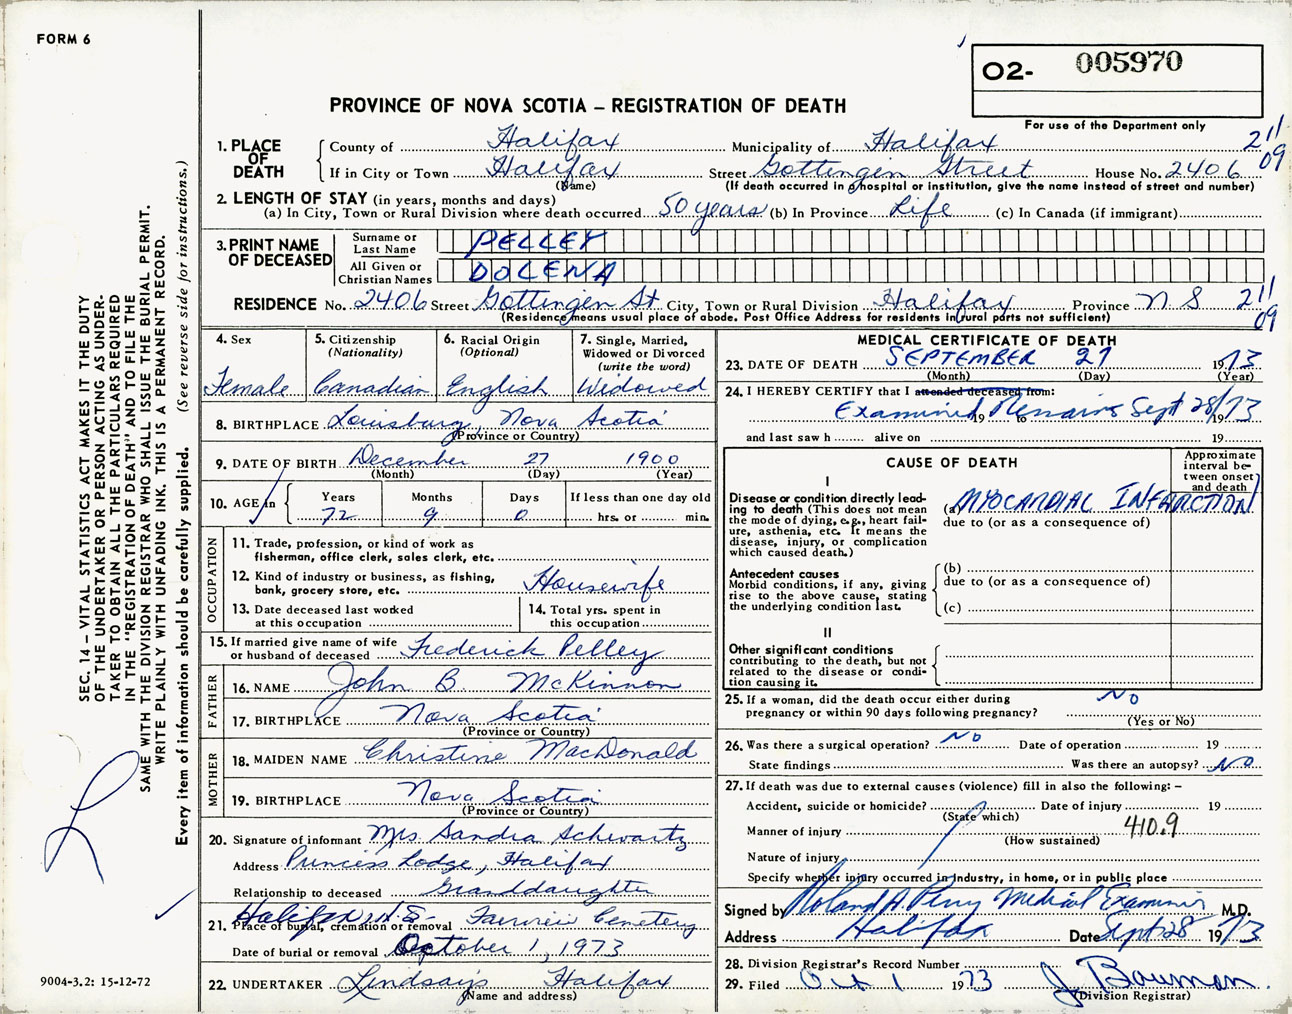 FORM 6
O2- 005970
PROVINCE OF NOVA SCOTIA – REGISTRATION OF DEATH
For use of the Department only
1. PLACE OF DEATH
County of Halifax Municipality of Halifax 211
If in City or Town Halifax Street Gottingen Street House No. 2406 09
(Name) (If death occurred in a hospital or institution, give the name instead of street and number)
2. LENGTH OF STAY (in years, months and days)
(a) In City, Town or Rural Division where death occurred 50 years (b) In Province Life (c) In Canada (if immigrant)
3. PRINT NAME OF DECEASED
Surname or Last Name PELLEY
All Given or Christian Names DOLENA
RESIDENCE No. 2406 Street Gottingen St. City, Town or Rural Division Halifax Province N S 211
(Residence means usual place of abode. Post Office Address for residents in rural parts not sufficient) 09
4. Sex
Female
5. Citizenship
(Nationality)
Canadian
6. Racial Origin
(Optional)
English
7. Single, Married, Widowed or Divorced
(write the word)
Widowed
8. BIRTHPLACE Louisburg, Nova Scotia
(Province or Country)
9. DATE OF BIRTH December 27 1900
(Month) (Day) (Year)
10. AGE in
Years 72
Months 9
Days 0
If less than one day old
hrs. or min.
OCCUPATION
11. Trade, profession, or kind of work as fisherman, office clerk, sales clerk, etc.
12. Kind of industry or business, as fishing, bank, grocery store, etc. Housewife
13. Date deceased last worked at this occupation
14. Total yrs. spent in this occupation
15. If married give name of wife or husband of deceased Frederick Pelley
FATHER
16. NAME John B. McKinnon
17. BIRTHPLACE Nova Scotia
(Province or Country)
MOTHER
18. MAIDEN NAME Christine MacDonald
19. BIRTHPLACE Nova Scotia
(Province or Country)
20. Signature of informant Mrs. Sandra Schwartz
Address Princess Lodge, Halifax
Relationship to deceased Granddaughter
21. Place of burial, cremation or removal Halifax N.S- Fairview Cemetery
Date of burial or removal October 1, 1973
22. UNDERTAKER Lindsay's Halifax
(Name and address)
MEDICAL CERTIFICATE OF DEATH
23. DATE OF DEATH SEPTEMBER 27 1973
(Month) (Day) (Year)
24. I HEREBY CERTIFY that I attended deceased from:
Examined Remains Sept 28/73
19 to 19
and last saw h alive on 19
CAUSE OF DEATH
Approximate interval between onset and death
I
Disease or condition directly leading to death (This does not mean the mode of dying, e.g., heart failure, asthenia, etc. It means the disease, injury, or complication which caused death.)
(a) MYOCARDIAL INFARCTION
due to (or as a consequence of)
Antecedent causes
Morbid conditions, if any, giving rise to the above cause, stating the underlying condition last.
(b)
due to (or as a consequence of)
(c)
II
Other significant conditions
contributing to the death, but not related to the disease or condition causing it.
25. If a woman, did the death occur either during pregnancy or within 90 days following pregnancy? No
(Yes or No)
26. Was there a surgical operation? No Date of operation 19
State findings Was there an autopsy? No
27. If death was due to external causes (violence) fill in also the following: –
Accident, suicide or homicide? Date of injury 19
(State which)
Manner of injury 410.9
(How sustained)
Nature of injury
Specify whether injury occurred in industry, in home, or in public place
Signed by Roland A. Perry Medical Examiner M.D.
Address Halifax Date Sept 28 1973
28. Division Registrar's Record Number
29. Filed Oct 1 1973 J. Bauman
(Division Registrar)
SEC. 14 – VITAL STATISTICS ACT MAKES IT THE DUTY
OF THE UNDERTAKER OR PERSON ACTING AS UNDER-
TAKER TO OBTAIN ALL THE PARTICULARS REQUIRED
IN THE "REGISTRATION OF DEATH" AND TO FILE THE
SAME WITH THE DIVISION REGISTRAR WHO SHALL ISSUE THE BURIAL PERMIT.
WRITE PLAINLY WITH UNFADING INK. THIS IS A PERMANENT RECORD.
Every item of information should be carefully supplied. (See reverse side for instructions.)
9004-3.2: 15-12-72